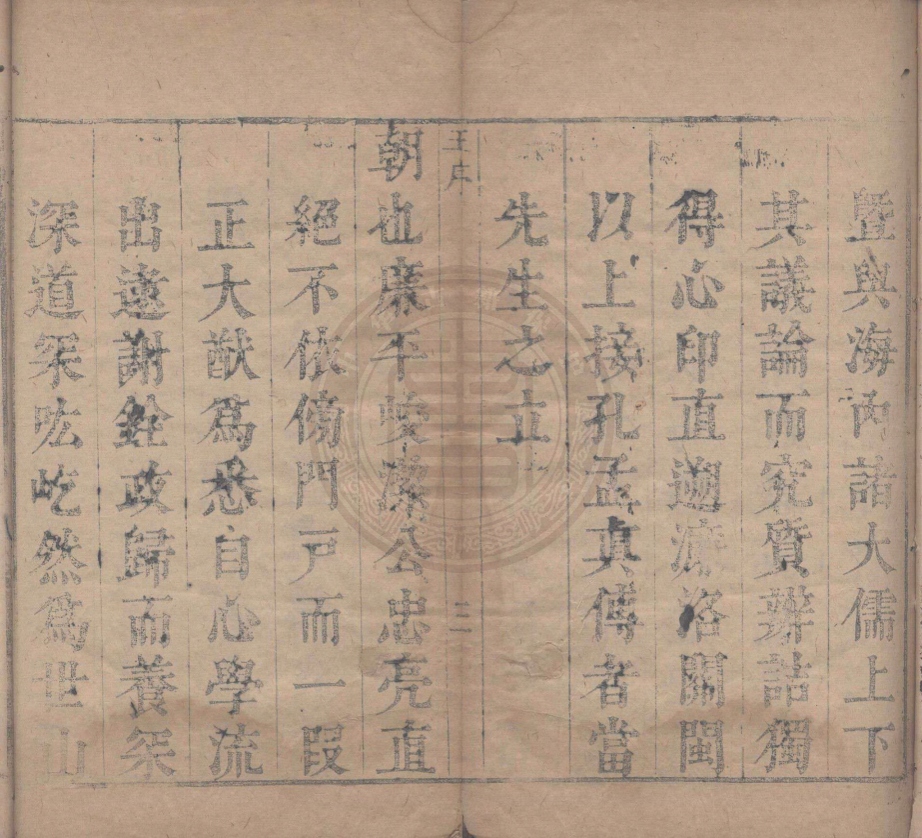 暨與海內諸大儒上下
其議論而究質辨詰獨
得心印直遡濂洛關閩
以上接孔孟真傳者當
先生之立
王序
三
朝也廉平峻潔公忠亮直
絕不依傍門戸而一段
正大猷爲悉自心學流
出遂謝銓政歸而養罙
深道罙吰屹然爲世山